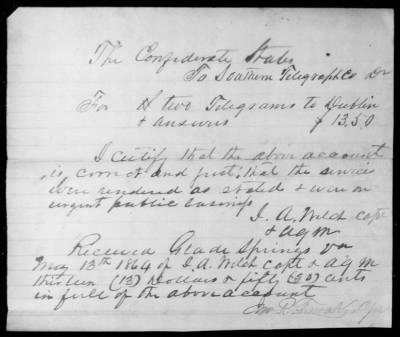 The Confederate States
To Southern Telegraph Co Dr
For two Telegrams to Dublin
& answers $13.50
I certify that the above account
is correct and just, that the services
were rendered as stated & were on
urgent public business
I. A. Welch Capt
& AQM
Received Glade Springs Va
May 13th 1864 of I. A. Welch Capt & AQM
thirteen (13) Dollars & fifty (50) cents
in full of the above account